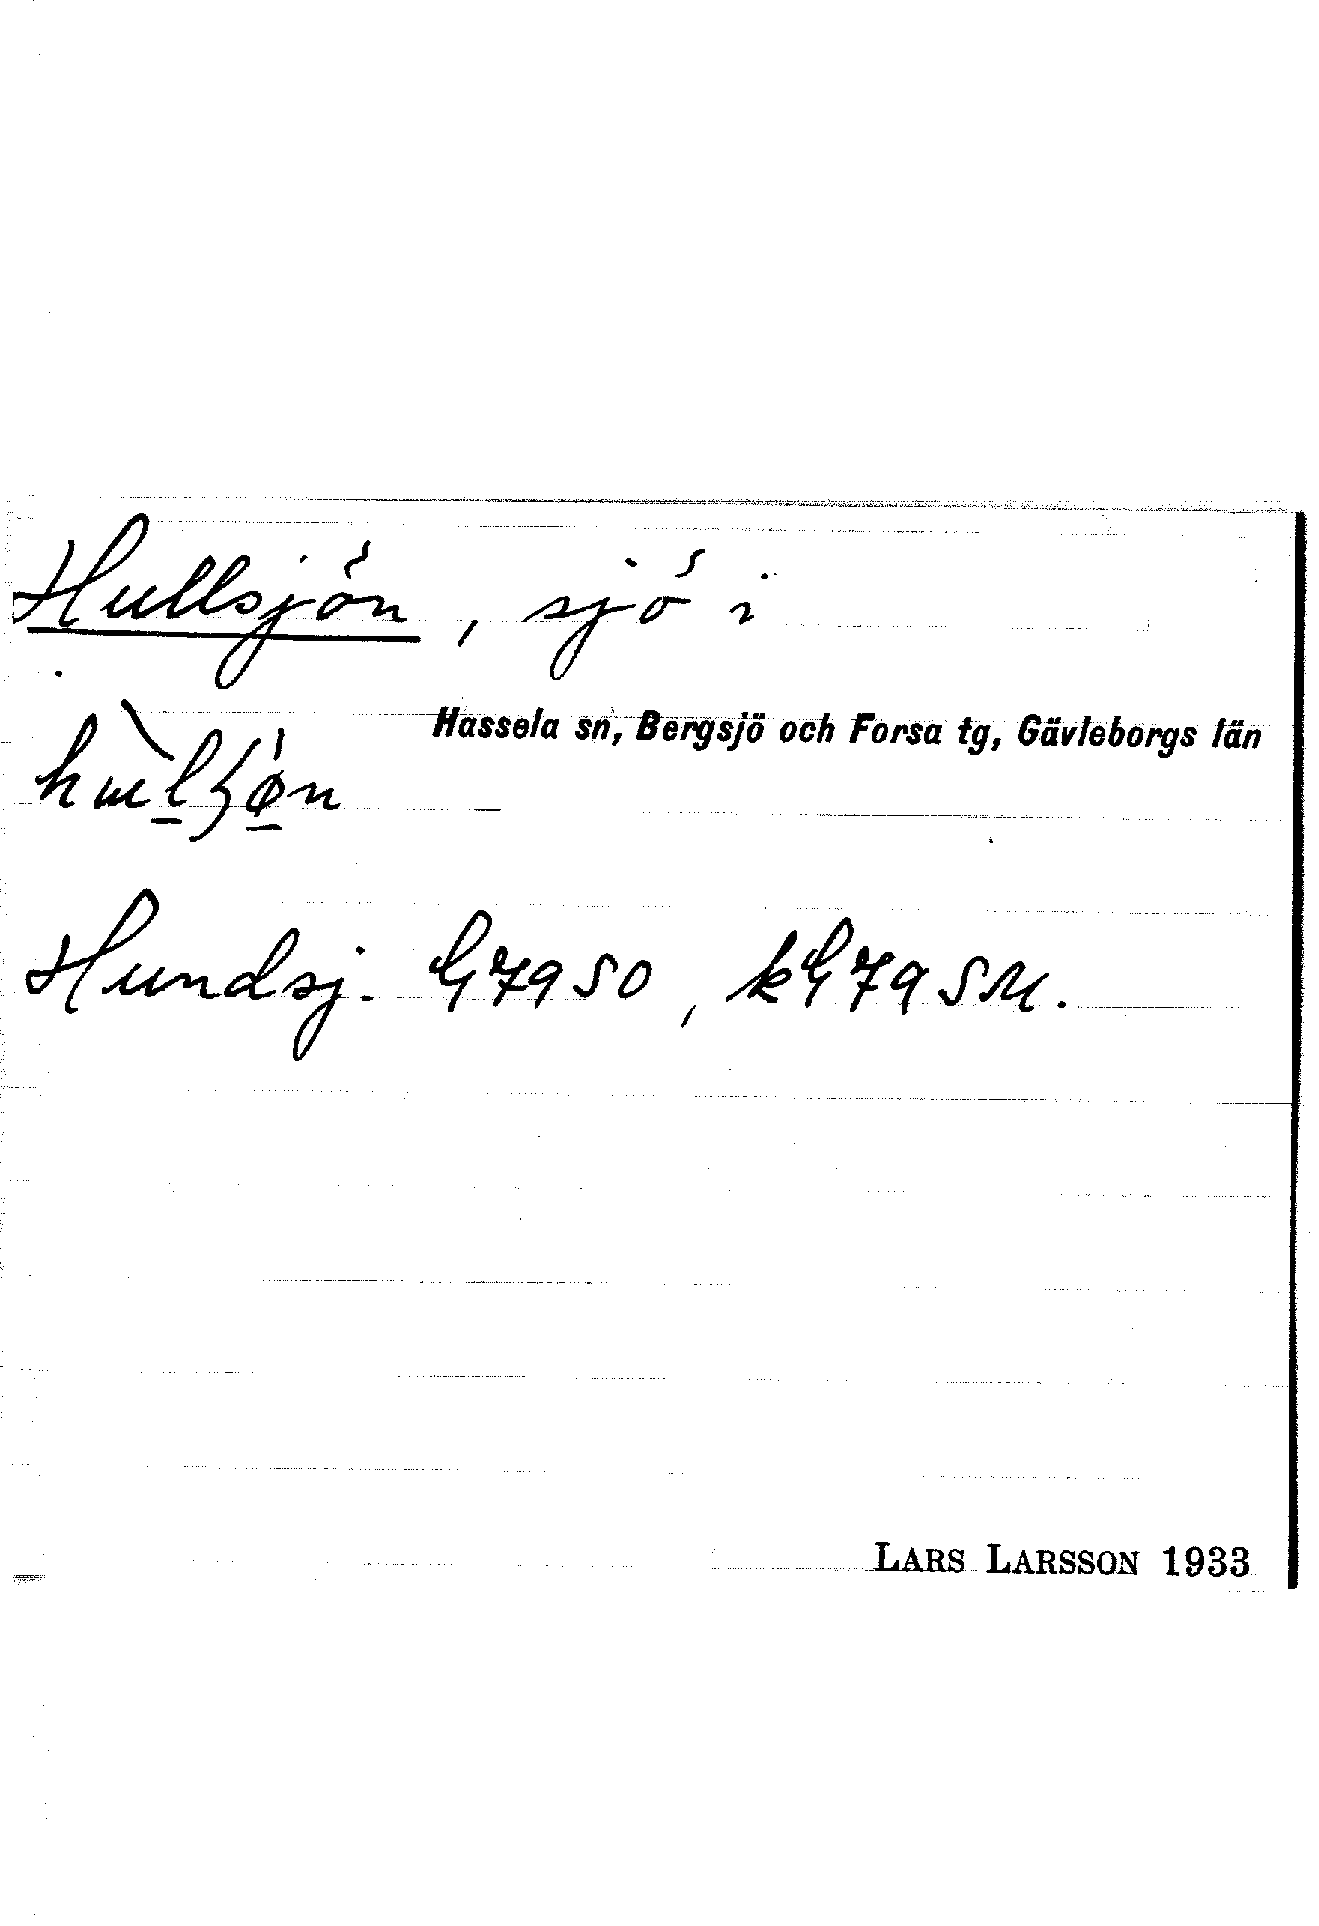 Hullsjön, sjö i
Hassela sn, Bergsjö och Forsa tg, Gävleborgs län
Hundsj. G79SO, kG79SM.
LARS LARSSON 1933